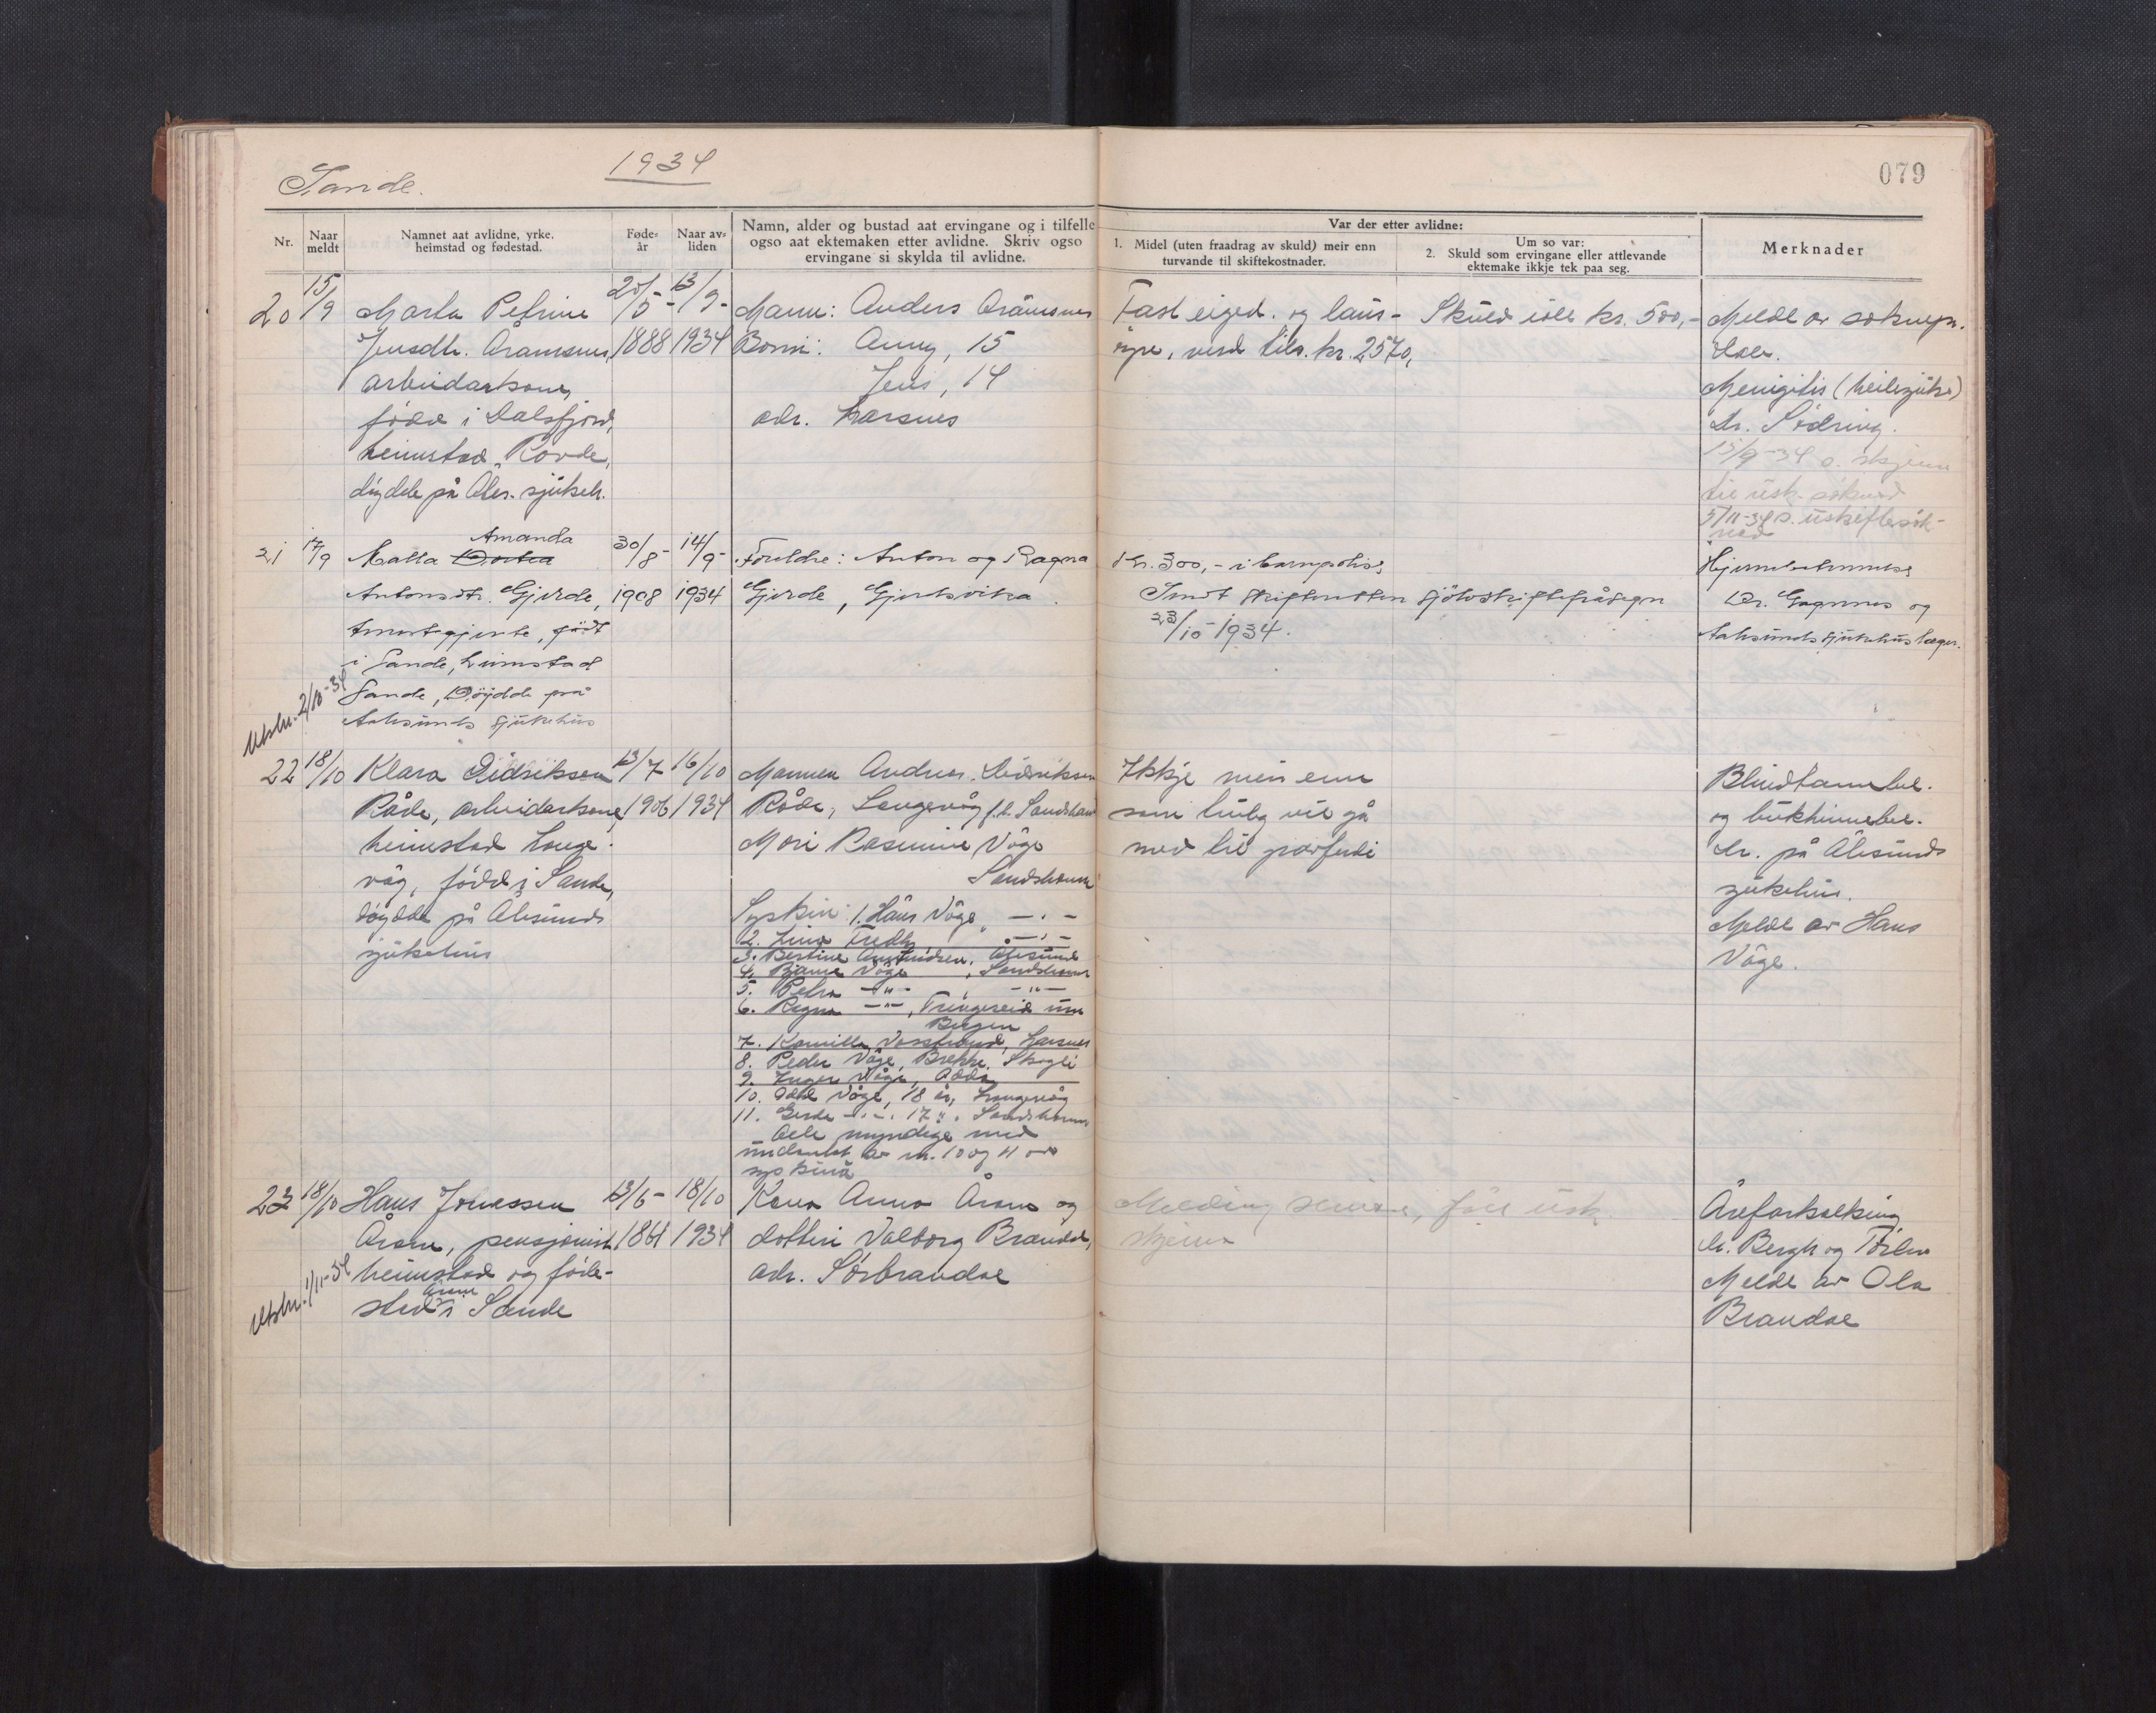 Sande.
1934
079
Nr.
Naar meldt
Namnet aat avlidne, yrke. heimstad og fødestad.
Føde-år
Naar av-liden
Namn, alder og bustad aat ervingane og i tilfelle
ogso aat ektemaken etter avlidne. Skriv ogso
ervingane si skylda til avlidne.
Var der etter avlidne:
1. Midel (uten fraadrag av skuld) meir enn
turvande til skiftekostnader.
Um so var:
2. Skuld som ervingane eller attlevande
ektemake ikkje tek paa seg.
Merknader
20 15/9 Marta Petrine
Jensdtr. Aramsnes,
arbeidarkone,
född i Dalsfjord,
heimstad Rovde,
döydde på Ales. sjukeh.
20/5- 1888
13/9- 1934
Mann: Anders Aramsnes
Born: Anny, 15
Jens, 14
adr. Larsnes
Fast eiged. og laus-
öyre, verd tils. kr. 2570,
Skuld ialt kr. 500,-
Meldt av soknepr.
Menigitis (heilesjuke)
Dr. Södring.
15/9-34 s. skjema
til usk. söknad
5/11-34 s. uskiftesök-
nad
21 17/9 Malla Dortea Amanda
Antonsdtr. Gjerde,
gjente, født
i Sande, heimstad
Sande, Döydde på
Aalesunds sjukehus
30/8- 1908
14/9- 1934
Foreldre: Anton og Ragna
Gjerde, Gjerdsvika.
Kr. 300,- i
Sendt skifteretten sjölvskiftefråsegn
23/10-1934.
Dr. Gagnnes og
Aalesunds sjukehus læger.
Utskr. 2/10-34
22 18/10 Klara Didriksen
Råde, arbeidarkone,
heimstad Lange-
våg, född i Sande,
döydde på Ålesunds
sjukehus
13/7 1906
16/10 1934
Mannen Andreas Didriksen
Råde, Langevåg f.t. Sandshamn
Mori Rasmine Våge
Sandshamn
Syskin: 1. Hans Våge, -"-
2. Lina Fredh -"-
3. Bertine Amundsen, Ålesund
4. Bjarne Våge, Sandshamn
5. Petra -"-, -"-
6. Ragna -"-, Trengereid um
Bergen
7. Kamilla Vasstrand, Larsnes
8. Peder Våge, Brekke, Skogli
9. Inger Våge, Odda
10. Odd Våge, 18 år, Langevåg
11. Gerda -"- 17 ", Sandshamn
Alle myndige med
undantak av nr. 10 og 11 av
syskina
Ikkje meir enn
som truleg vil gå
med til gravferdi
Blindtarmbet.
og bukhinnebet.
Dr. på Ålesunds
sjukehus.
Meldt av Hans
Våge.
23 18/10 Hans Jonassen
Åram, pensjonist
heimstad og föde-
stad Åram i Sande
13/6- 1861
18/10 1934
Kona Anna Åram og
dotteri Valborg Brandal,
adr. Sörbrandal
Melding seinare, fått usk.
skjema
Åreforkalking
Dr. Bergh og
Meldt av Ola
Brandal
Utskr. 1/11-34